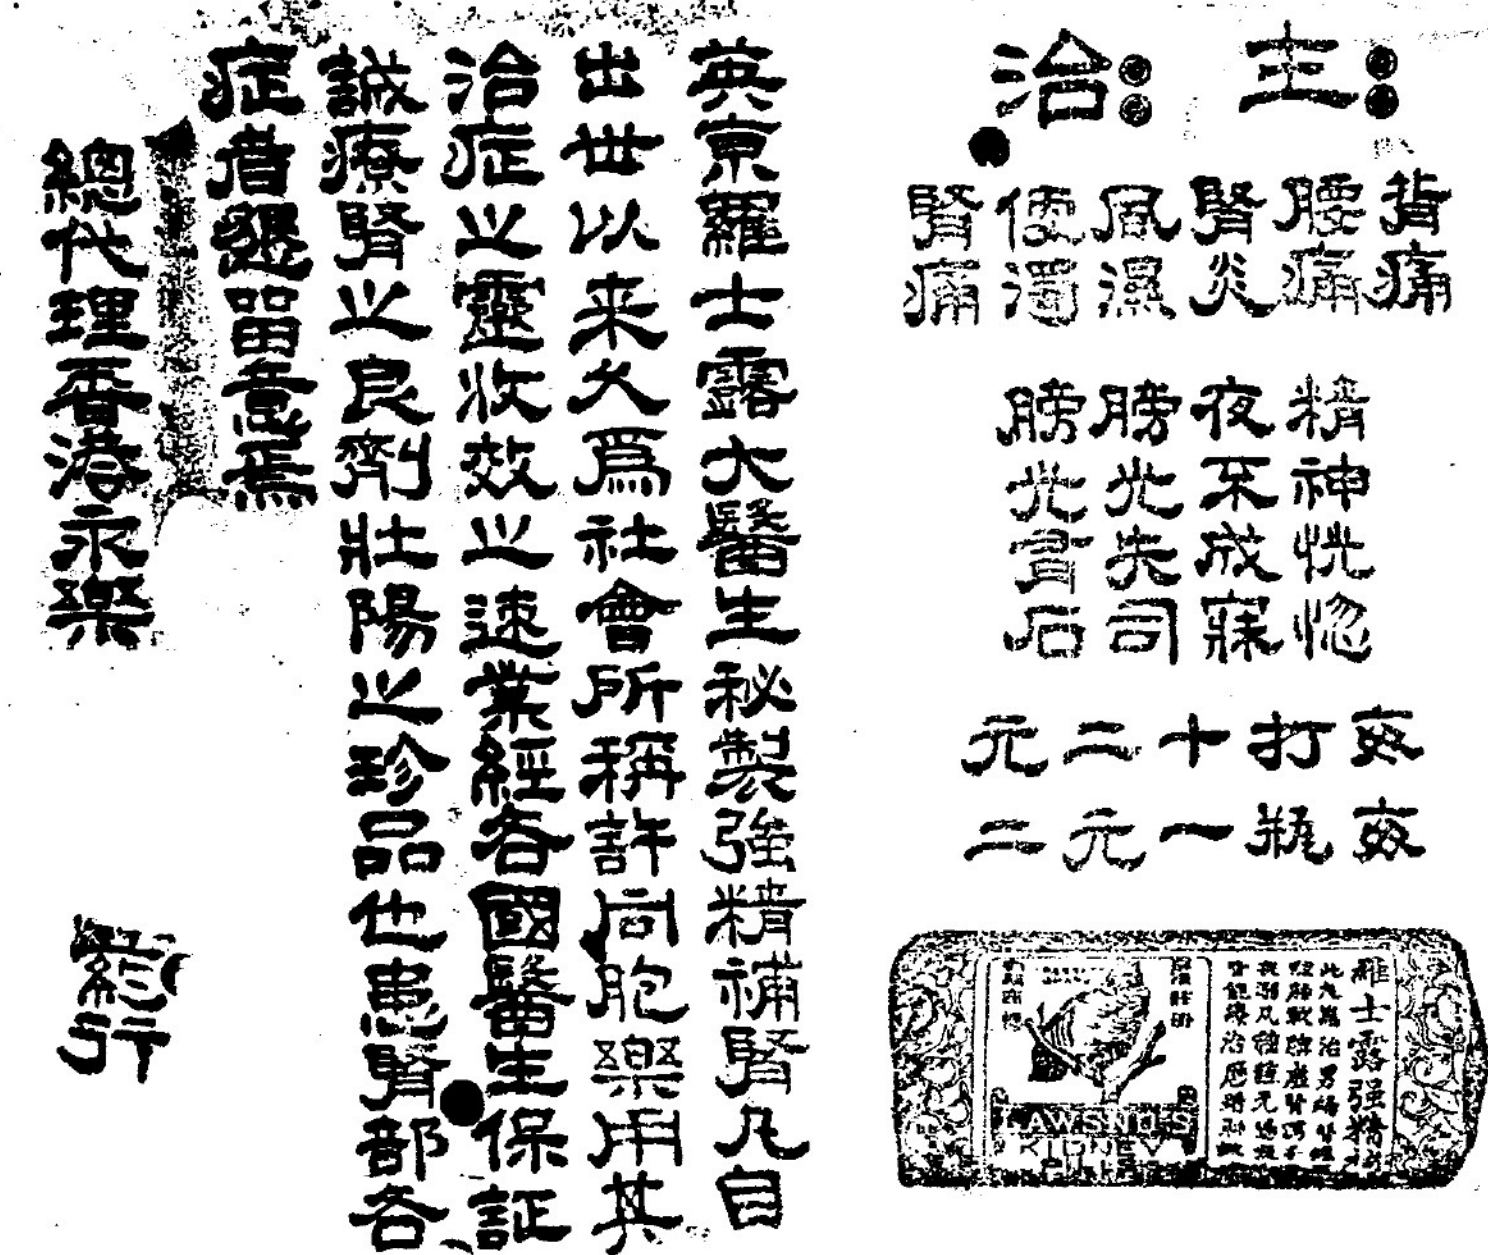 主治
背痛
腰痛
腎炎
風濕
便濁
腎痛
精神恍惚
夜不成寐
膀胱失司
膀胱腎石
每打十二元
每瓶一元二
羅士露强精
LAWSND'S
KIDNEY
英京羅士露大醫生秘製強精補腎凡自
出世以来久爲社會所稱許同胞樂用其
治症之靈收效之速業經各國醫生保証
誠療腎之良劑壯陽之珍品也患腎部各
症者懇留意焉
總代理香港永樂
葯行